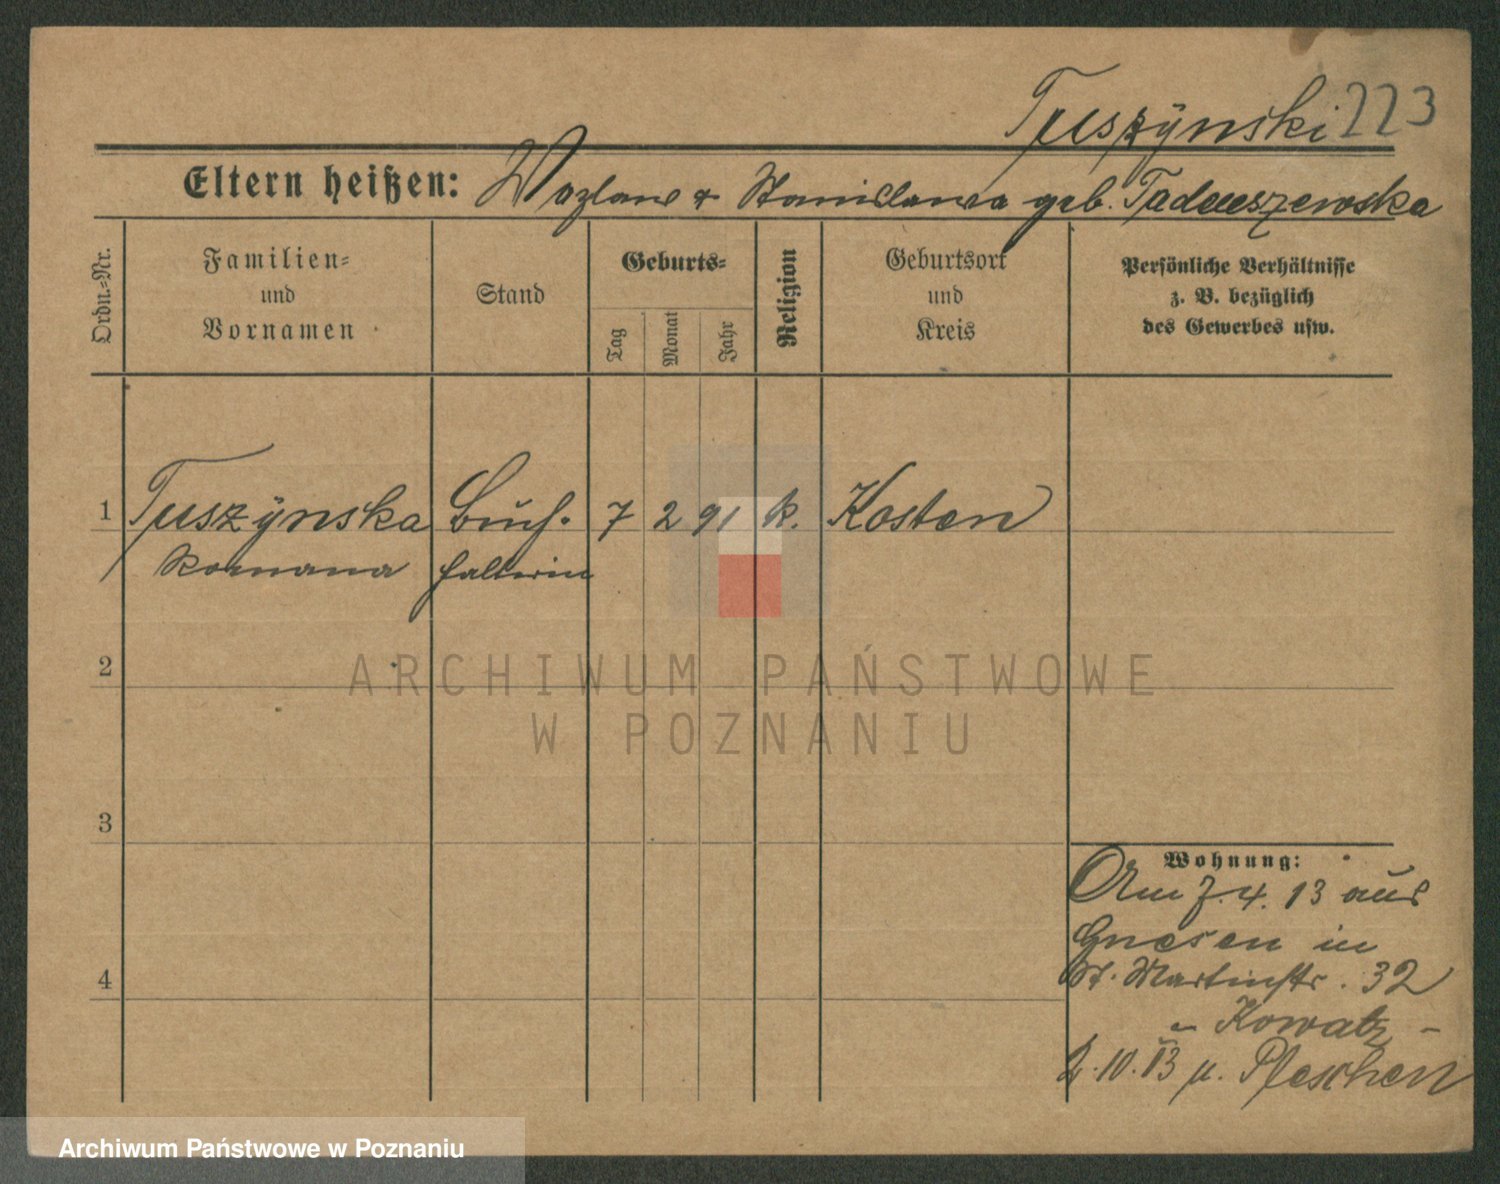 Tuszÿnski 223
Eltern heißen: Wazlaw & Stanislawa geb. Tadeuszewska
Ordn.-Nr.
Familien-
und
Vornamen
Stand
Geburts-
Tag
Monat
Jahr
Religion
Geburtsort
und
Kreis
Persönliche Verhältnisse
z. B. bezüglich
des Gewerbes usw.
1 Tuszÿnska Buch- 7 2 91 k. Kosten
Romana halterin
2
3
4
Wohnung:
Am 7. 4. 13 aus
Gnesen in
St. Martinstr. 32
Kowatz -
2. 10. 13 n. Pleschen
ARCHIWUM PAŃSTWOWE
W POZNANIU
Archiwum Państwowe w Poznaniu